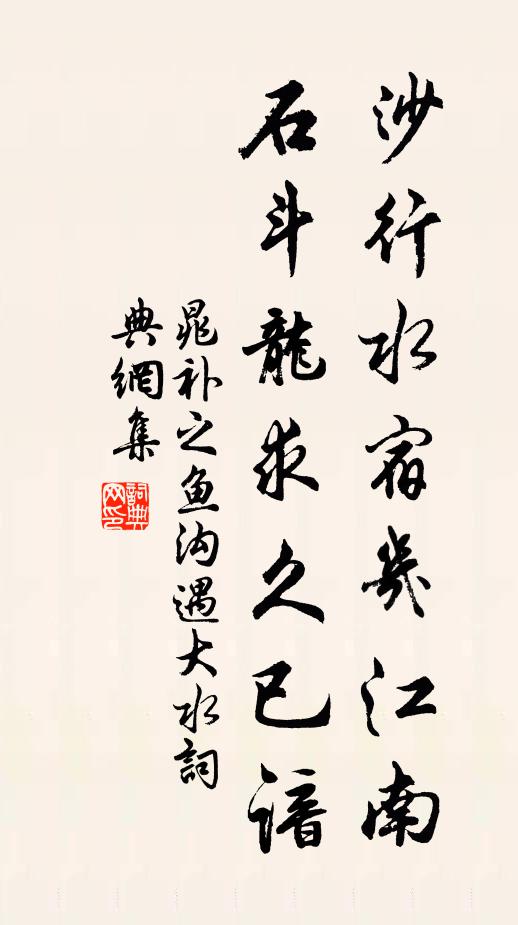 沙行水宿幾江南
石斗龍求久已諳
晁补之鱼沟遇大水詞
典網集
詞典
网印